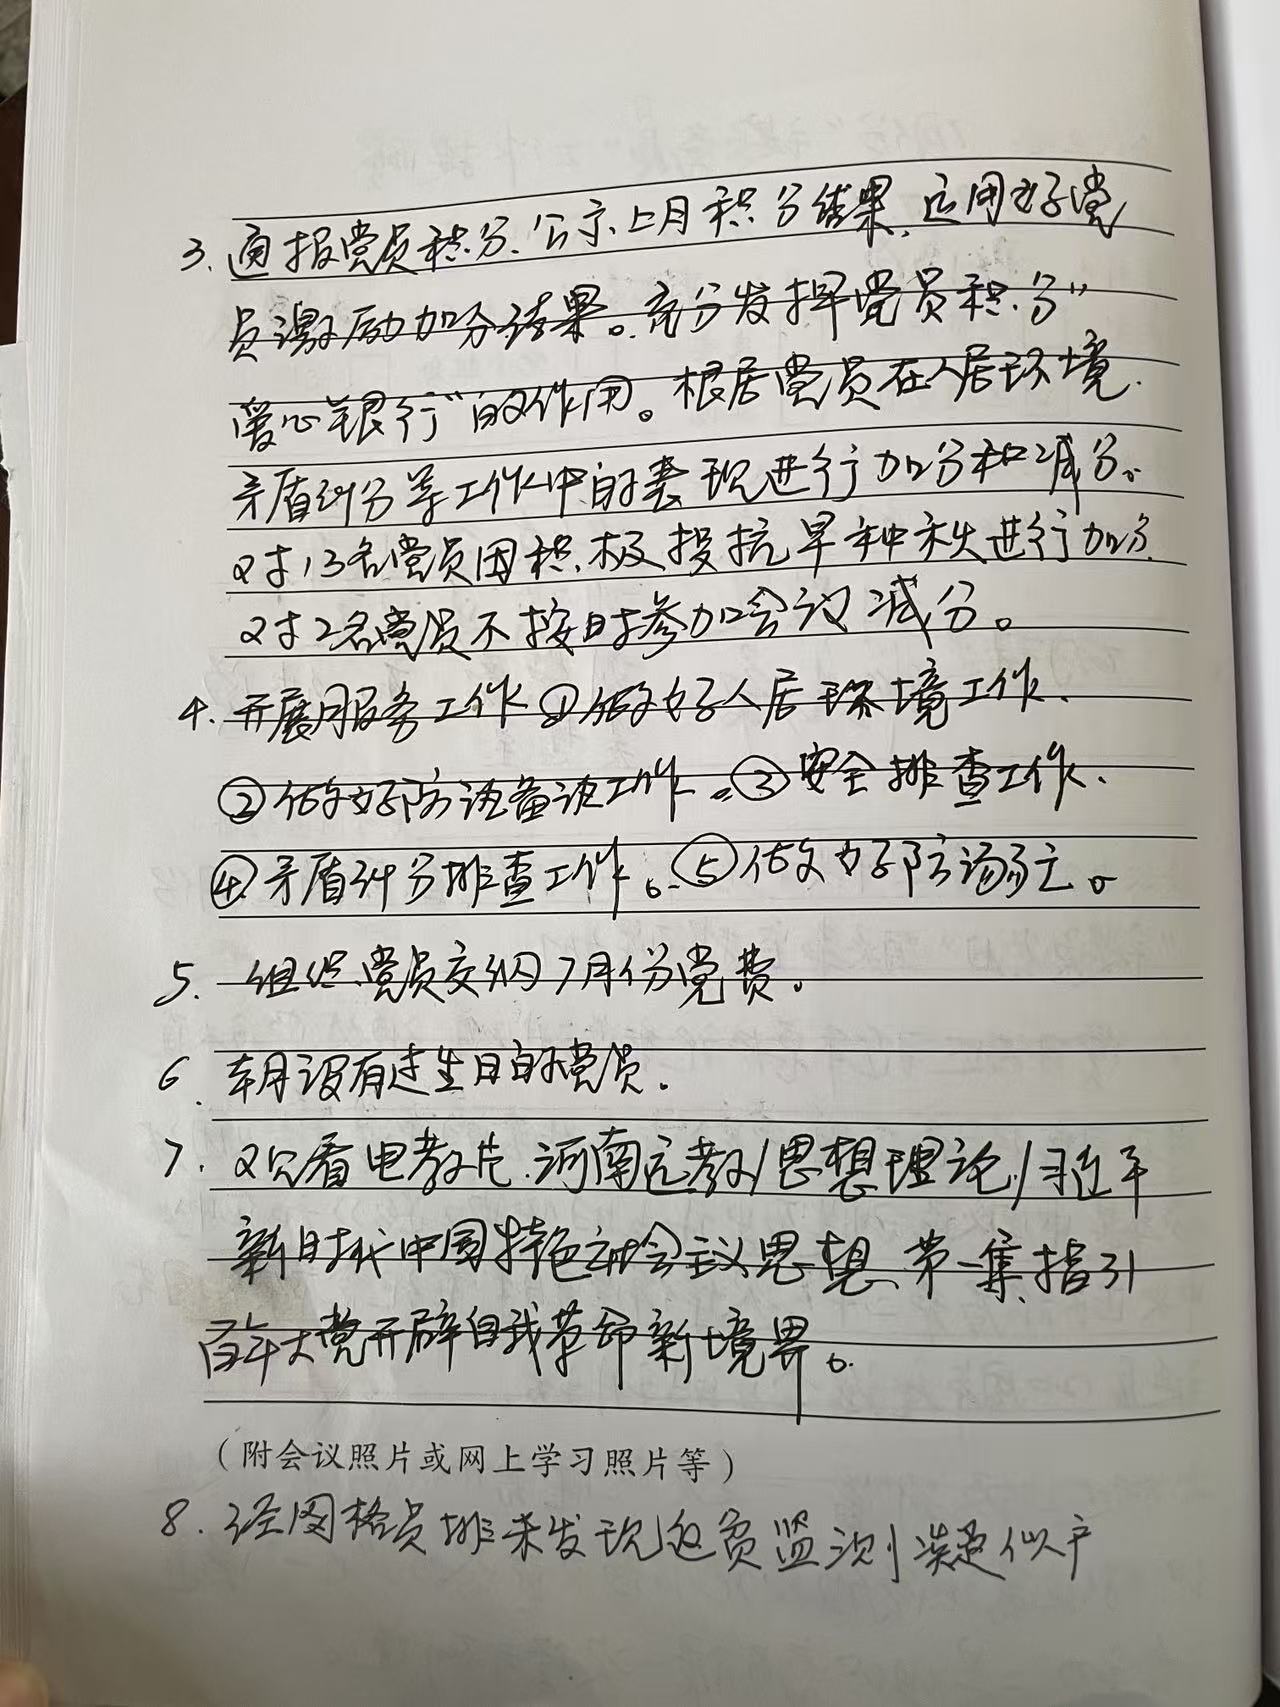 3. 通报党员积分、公示上月积分结果,运用好党
员激励加分结果。充分发挥党员积分"
爱心银行"的作用。根居党员在人居环境.
矛盾纠分等工作中的表现进行加分和减分。
对13名党员因积极投抗旱种秋进行加分.
对2名党员不按时参加会议减分。
4. 开展服务工作①做好人居环境工作.
②做好防汛备汛工作。③安全排查工作.
④矛盾纠分排查工作。⑤做好防溺亡。
5. 组织党员交纳7月份党费.
6. 本月没有过生日的党员.
7. 观看电教片.河南远教/思想理论/习近平
新时代中国特色社会主义思想、第一集指引
百年大党开辟自我革命新境界。
(附会议照片或网上学习照片等)
8. 经网格员排未发现返贫监测疑似户